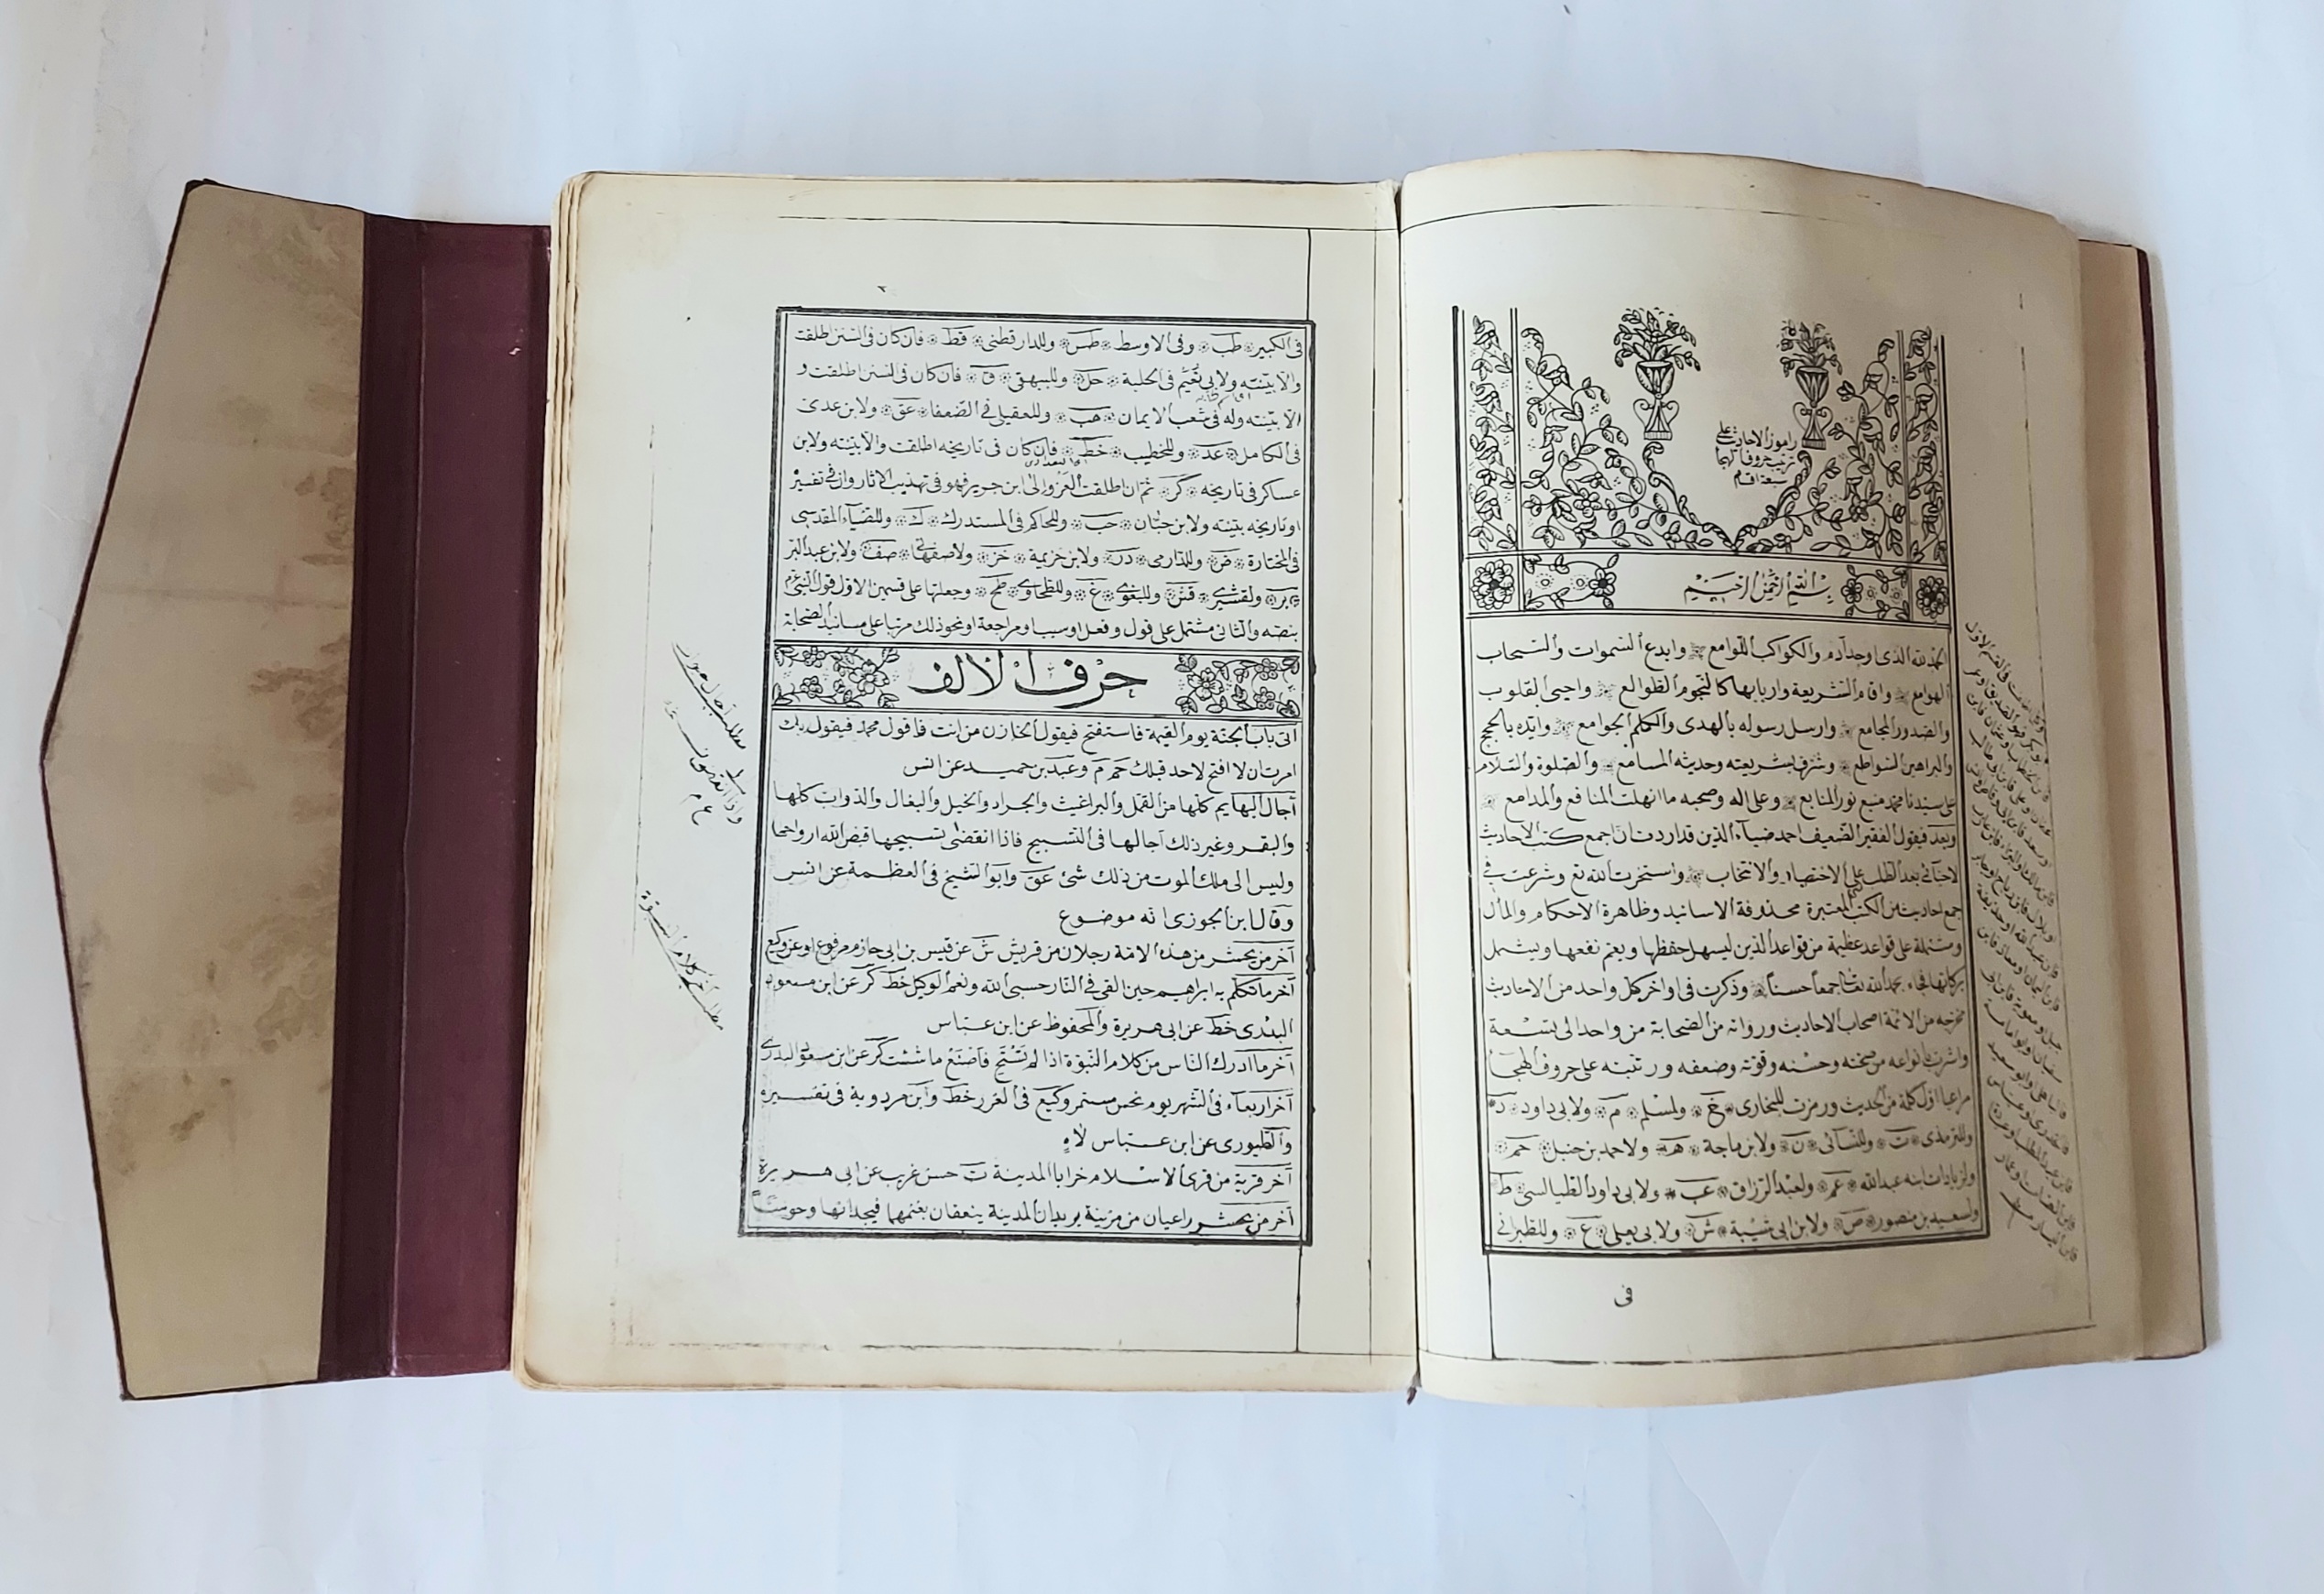 راموز الاحاديث على
ترتيب حروف الهجا
سبعة اقلام
بسم الله الرحمن الرحيم
الحمد لله الذى اوجد آدم والكواكب اللوامع وابدع السموات والسحاب
الهوامع واقام الشريعة واربابها كالنجوم الطوالع واحيى القلوب
والصدور المجامع وارسل رسوله بالهدى والكلم الجوامع وايده بالحجج
والبراهين السواطع وشرف بشريعته وحديثه المسامع والصلوة والسلام
على سيدنا محمد منبع نور المنابع وعلى اله وصحبه ما انهلت المنافع والمدامع
وبعد فيقول الفقير الضعيف احمد ضياء الدين قد اردت ان اجمع كتب الاحاديث
لاحبائى بعد الطلب على الاختصار والانتخاب واستخرت الله تع وشرعت فى
جمع احاديث من الكتب المعتبرة محذوفة الاسانيد وظاهرة الاحكام والمال
ومشتملة على قواعد عظيمة من قواعد الدين ليسهل حفظها ويعم نفعها ويشمل
بركاتها فجاء بحمد الله تعالى جمعا حسنا وذكرت فى اواخر كل واحد من الاحاديث
مخرجه من الائمة اصحاب الاحاديث ورواته من الصحابة من واحد الى تسعة
واشرت بانواعه من صحته وحسنه وقوته وضعفه ورتبته على حروف الهجا
مراعيا اول كلمة من الحديث ورمزت للبخارى خ ولمسلم م ولابى داود د
وللترمذى ت وللنسائى ن ولابن ماجة ه ولاحمد بن حنبل حم
ولزيادات ابنه عبدالله عم ولعبد الرزاق عب ولابى داود الطيالسى ط
ولسعيد بن منصور ص ولابن ابى شيبة ش ولابى يعلى ع وللطبرانى
فى
فى الكبير طب وفى الاوسط طس وللدارقطنى قط فان كان فى السنن اطلقت
والا بينته ولابى نعيم فى الحلية حل وللبيهقى ق فان كان فى السنن اطلقت و
الا بينته وله فى شعب الايمان هب وللعقيلى فى الضعفا عق ولابن عدى
فى الكامل عد وللخطيب خط فان كان فى تاريخه اطلقت والا بينته ولابن
عساكر فى تاريخه كر ثم ان اطلقت العزو الى ابن جرير فهو فى تهذيب الاثار وان فى تفسيره
او تاريخه بينته ولابن حبان حب وللحاكم فى المستدرك ك وللضياء المقدسى
فى المختارة ض وللدارمى در ولابن خزيمة خز ولاصفهانى صف ولابن عبد البر
بر ولقشيرى قش وللبغوى غ وللطحاوى طح وجعلتها على قسمين الاول قول النبى عم
بنصه والثانى مشتمل على قول وفعل او سبب او مراجعة او نحو ذلك مرتبا على مسانيد الصحابة
حرف الالف
آتى باب الجنة يوم القيمة فاستفتح فيقول الخازن من انت فاقول محمد فيقول بك
امرت ان لا افتح لاحد قبلك حم م وعبد بن حميد عن انس
آجال البهايم كلها من القمل والبراغيث والجراد والخيل والبغال والدواب كلها
والبقر وغير ذلك آجالها فى التسبيح فاذا انقضى تسبيحها قبض الله ارواحها
وليس الى ملك الموت من ذلك شئ عق وابو الشيخ فى العظمة عن انس
وقال ابن الجوزى انه موضوع
آخر من يحشر من هذه الامة رجلان من قريش ش عن قيس بن ابى حازم مرفوع او عن وكيع
آخر ما تكلم به ابراهيم حين القى فى النار حسبى الله ونعم الوكيل خط كر عن ابن مسعود
البدرى خط عن ابى هريرة والمحفوظ عن ابن عباس
آخر ما ادرك الناس من كلام النبوة اذا لم تستح فاصنع ما شئت كر عن ابن مسعود البدرى
آخر اربعاء فى الشهر يوم نحس مستمر وكيع فى الغرر خط وابن مردوية فى تفسيره
والطيورى عن ابن عباس لاه
آخر قرية من قرى الاسلام خرابا المدينة ت حسن غريب عن ابى هريرة
آخر من يحشر راعيان من مزينة يريدان المدينة ينعقان بغنمهما فيجدانها وحوشا
مطلب آخر كلام النبوة